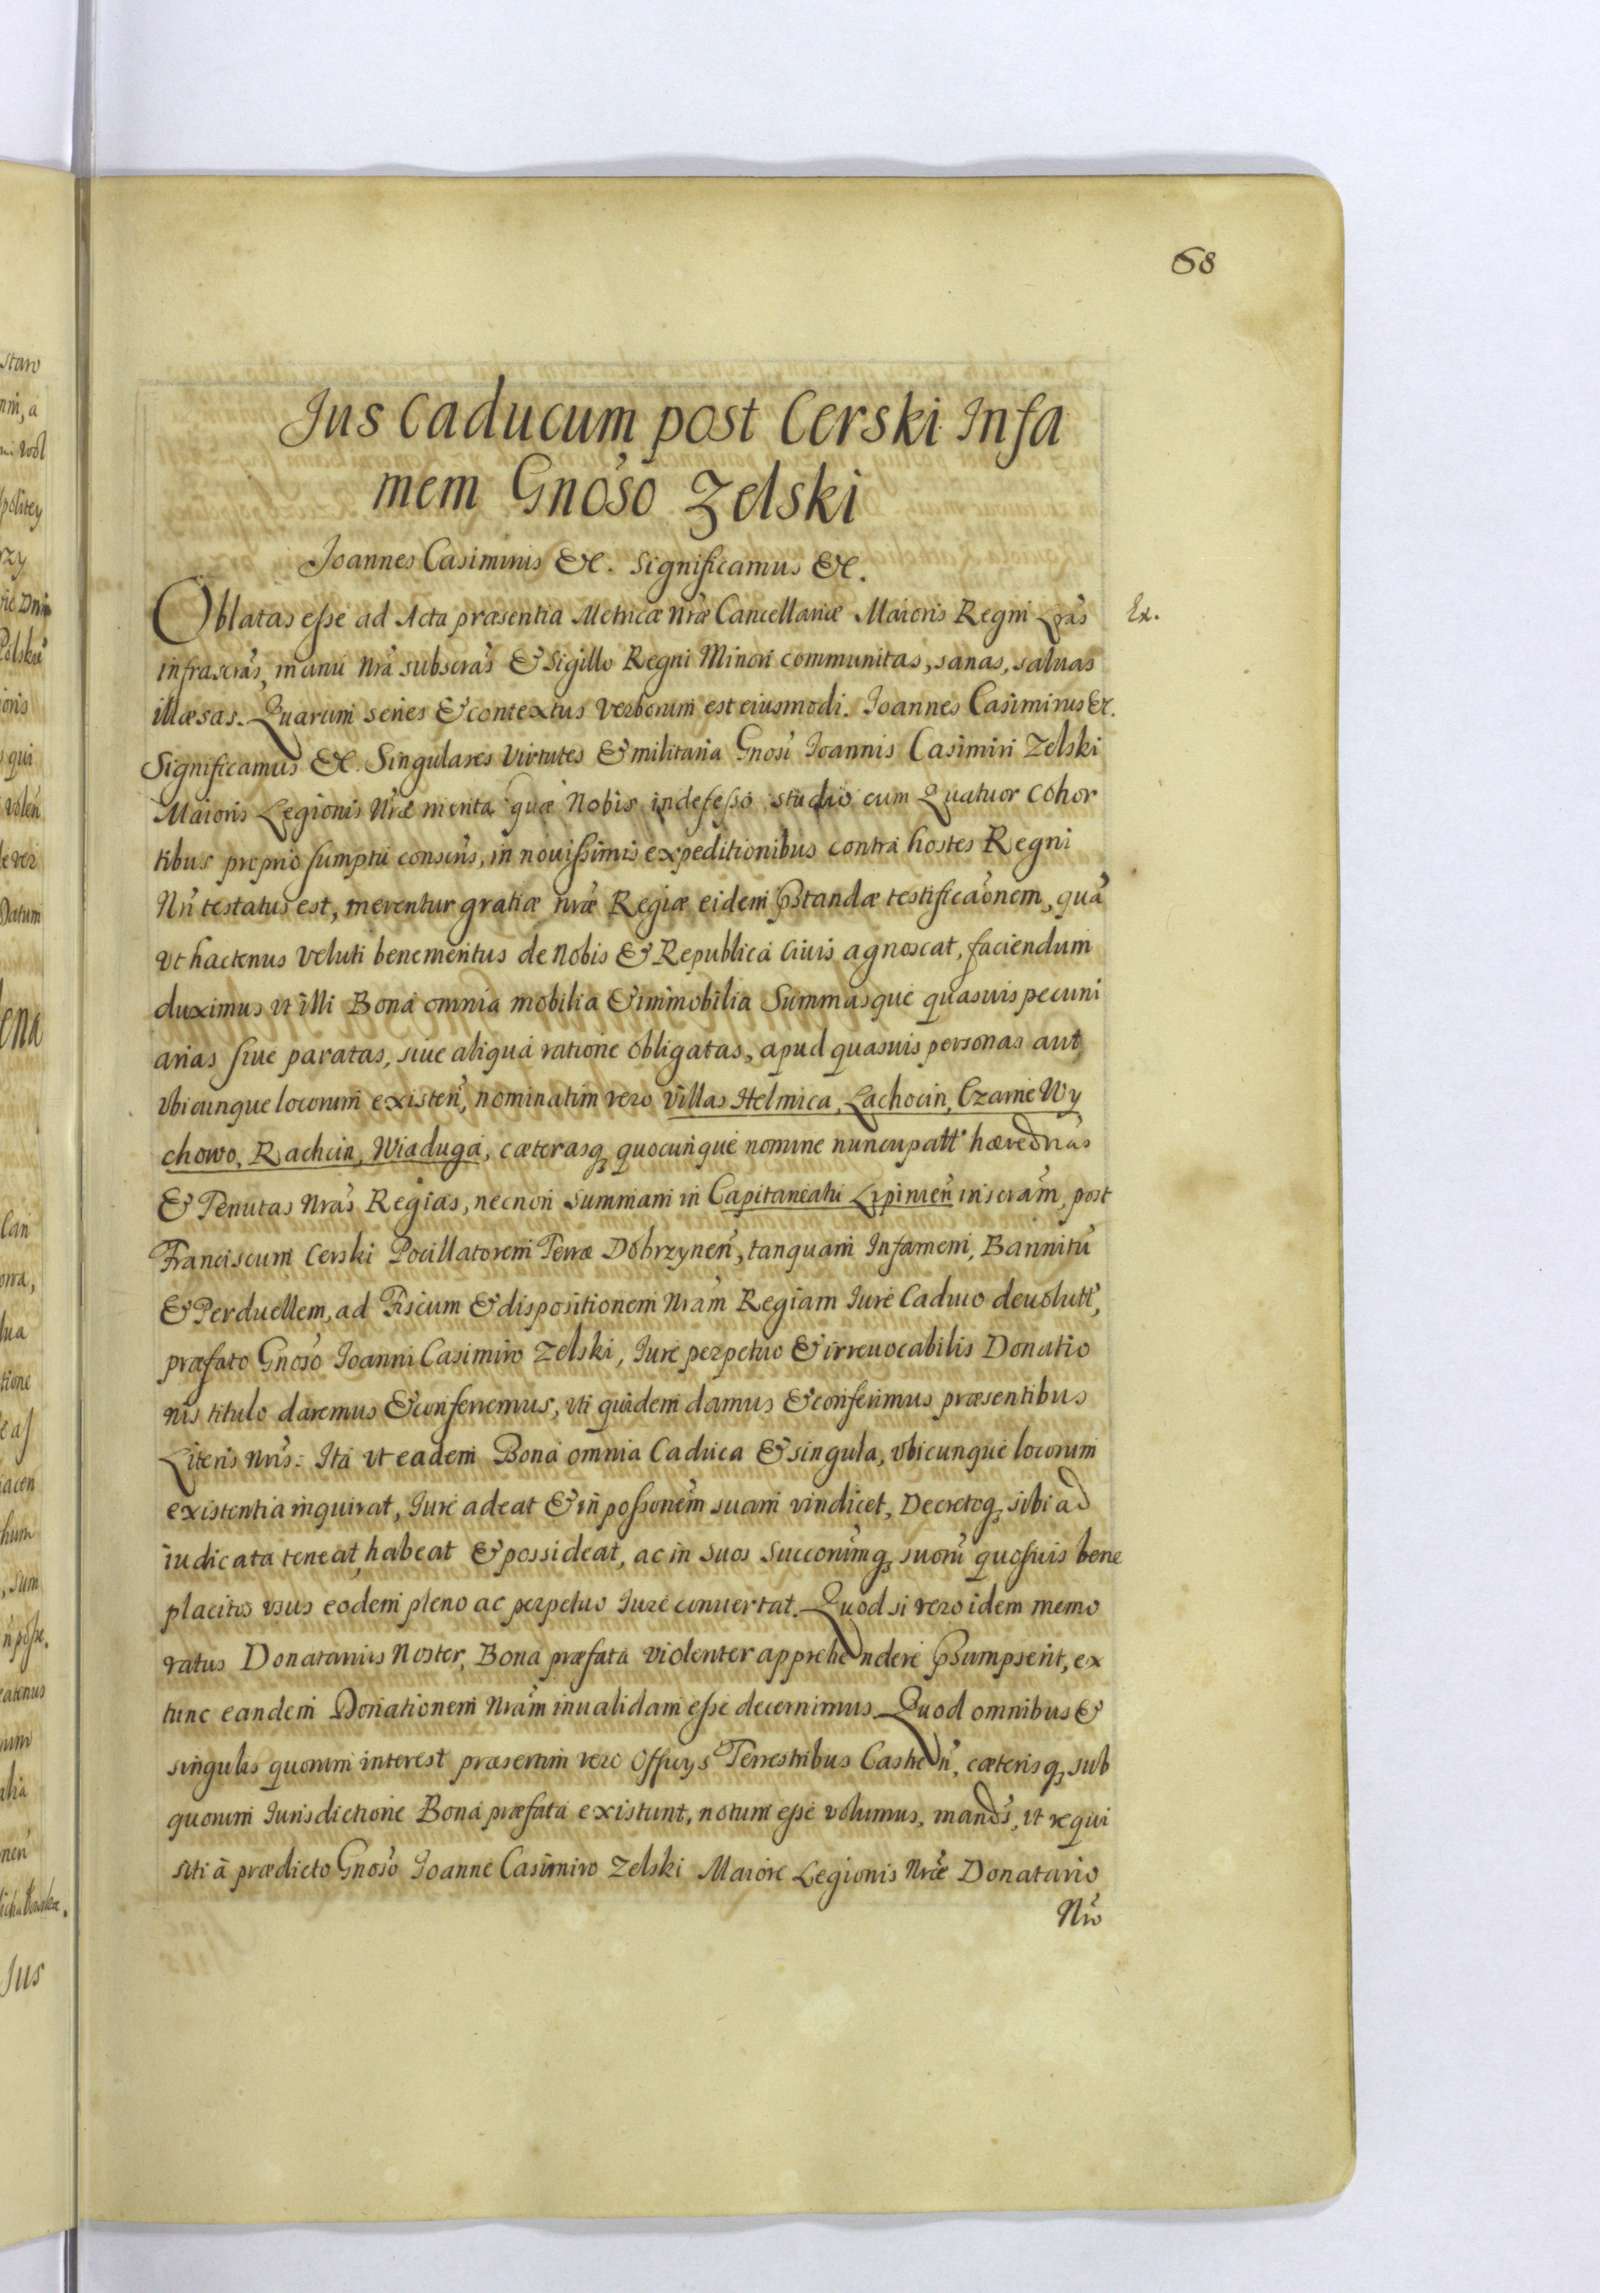 68
Jus caducum post Cerski Infa
mem Gnoso Zelski
Joannes Casimirus &c. Significamus &c.
Oblatas esse ad Acta præsentia Metricæ Nræ Cancellariæ Maioris Regni Lras
Ex.
infrascras, manu Nra subscras & Sigillo Regni Minori communitas, sanas, saluas
illæsas. Quarum series & contextus verborum est eiusmodi. Joannes Casimirus &c.
Significamus &c. Singulares virtutes & militaria Gnosi Joannis Casimiri Zelski
Maioris Legionis Nræ merita quæ Nobis indefesso studio cum Quatuor Cohor
tibus proprio sumptu conscris, in nouissimis expeditionibus contra hostes Regni
Nri testatus est, merentur gratiæ nræ Regiæ eidem pstandæ testificaonem, qua
vt hactenus veluti benemeritus de Nobis & Republica Ciuis agnoscat, faciendum
duximus vt illi Bona omnia mobilia & immobilia Summasque quasuis pecuni
arias siue paratas, siue aliqua ratione obligatas, apud quasuis personas aut
vbicunque locorum existen, nominatim vero villas Helmica, Lachocin, Czarne Wy
chowo, Rachcin, Wiaduga, cæterasq quocunque nomine nuncupatt hæredrias
& Tenutas Nras Regias, necnon summam in Capitaneatu Lipinien inscram, post
Franciscum Cerski Pocillatorem Terræ Dobrzynen, tanquam Infamem, Bannitu
& Perduellem, ad Fiscum & dispositionem Nram Regiam Jure Caduco deuolutt,
præfato Gnoso Joanni Casimiro Zelski, Jure perpetuo & irreuocabilis Donatio
nis titulo daremus & conferremus, vti quidem damus & conferimus præsentibus
Literis Nris: Ita vt eadem Bona omnia Caduca & singula, vbicunque locorum
existentia inquirat, Jure adeat & in possonem suam vindicet, Decretoq sibi ad
iudicata teneat, habeat & possideat, ac in suos succorumq suoru quosuis bene
placitos vsus eodem pleno ac perpetuo Jure conuertat. Quod si vero idem memo
ratus Donatarius Noster, Bona præfata violenter apprehendere psumpserit, ex
tunc eandem Donationem Nram inualidam esse decernimus. Quod omnibus &
singulis quorum interest præsertim vero Officys Terrestribus Castren, cæterisq sub
quorum Jurisdictione Bona præfata existunt, notum esse volumus, mands, vt requi
siti à prædicto Gnoso Joanne Casimiro Zelski Maiore Legionis Nræ Donatario
Nro